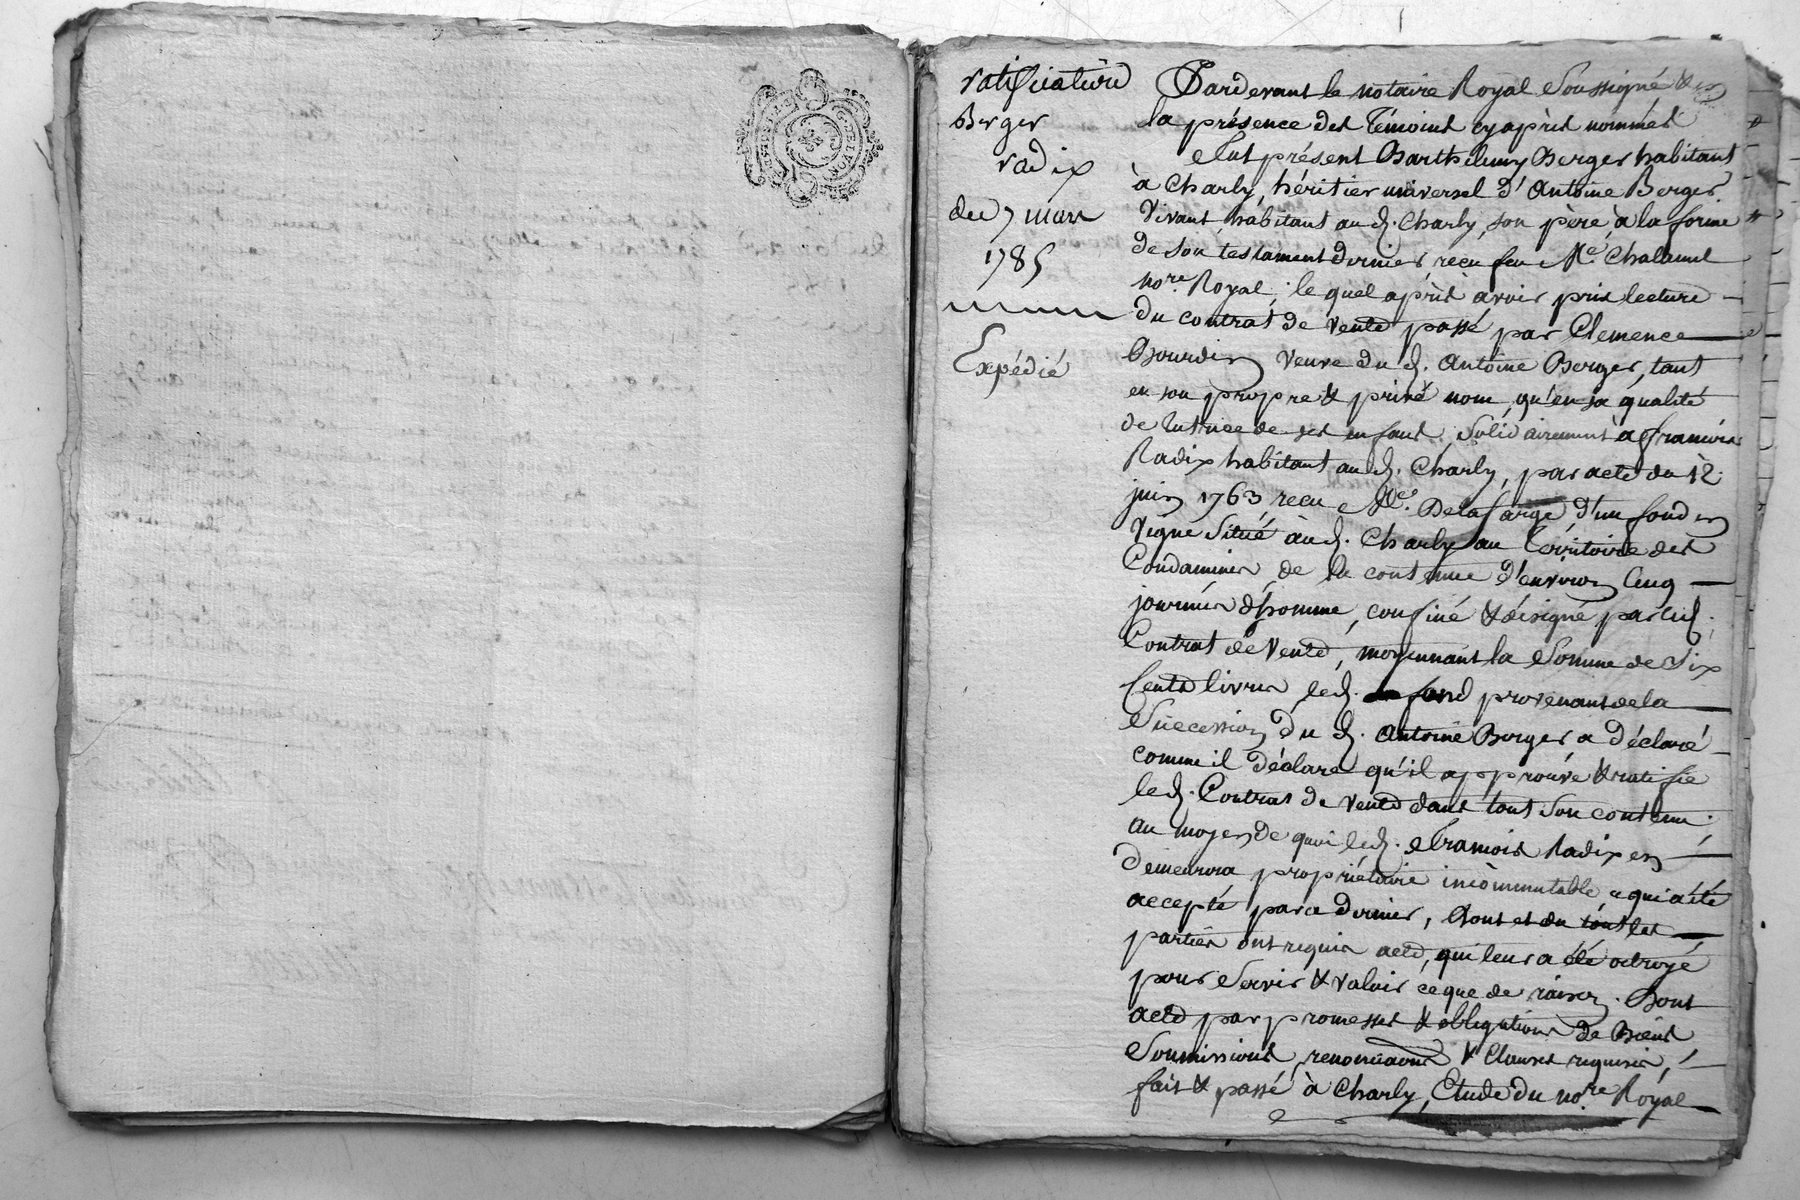 ratification
Berger
radix
du 7 mars
1785
Expédié
Pardevant le notaire Royal Soussigné & en
la présence des Témoins cyaprès nommés
Fut présent Barthelemy Berger habitant
à Charly, héritier universel d'Antoine Berger
Vivant, habitant aud. Charly, son père, à la forme
de son testament dernier, reçu feu Me. Chalamel
nore. Royal, le quel après avoir pris lecture
du contrat de vente passé par Clemence
Bourdin veuve du d. Antoine Berger, tant
en son propre & privé nom, qu'en sa qualité
de tutrice de ses enfans, Solidairement à françois
Radix habitant aud. Charly, par acte du 12
juin 1763, reçu Me. Delafarge, d'un fond en
Vigne Situé aud. Charly au territoire des
Condamines, de la contenue d'environ Cinq
journées d'homme, confiné & désigné par led.
Contrat de Vente, moyennant la Somme de Six
Cents livres, led. fond provenant de la
Succession du d. Antoine Berger a déclaré
comme il déclare qu'il approuve & ratifie
led. Contrat de vente dans tout Son contenu;
au moyen de quoi led. François Radix en
demeurera propriétaire incommutable, ce qui a été
accepté par ce dernier, Dont et du tout les
parties ont requis acte, qui leur a été octroyé
pour Servir & valoir ce que de raison. Dont
acte par promesses & obligations de Biens,
Soumissions, renonciations & Clauses requises,
fait & passé à Charly, Etude du nore. Royal